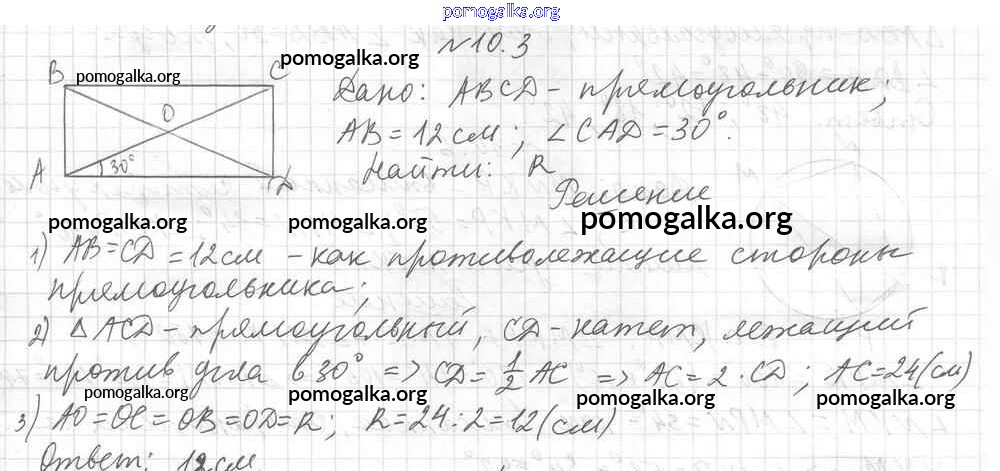 pomogalka.org
№10.3
B
C
pomogalka.org
pomogalka.org
O
A
30°
D
Дано: ABCD - прямоугольник;
AB = 12 см; ∠CAD = 30°.
Найти: R
Решение
pomogalka.org
pomogalka.org
pomogalka.org
1) AB = CD = 12 см - как противолежащие стороны
прямоугольника;
2) △ACD - прямоугольный, CD - катет, лежащий
против угла в 30° => CD = 1/2 AC => AC = 2 · CD; AC = 24 (см)
pomogalka.org
pomogalka.org
pomogalka.org
pomogalka.org
3) AO = OC = OB = OD = R; R = 24 : 2 = 12 (см)
Ответ: 12 см